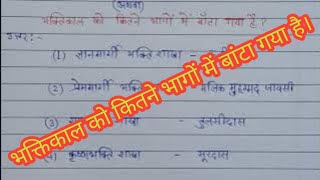 (अथवा)
भक्तिकाल को कितने भागों में बाँटा गया है?
उत्तर:-
(1) ज्ञानमार्गी भक्ति शाखा -
(2) प्रेममार्गी भक्ति मलिक मुहम्मद जायसी
(3) शाखा - तुलसीदास
कृष्णभक्ति शाखा - सूरदास
भक्तिकाल को कितने भागों में बांटा गया है।